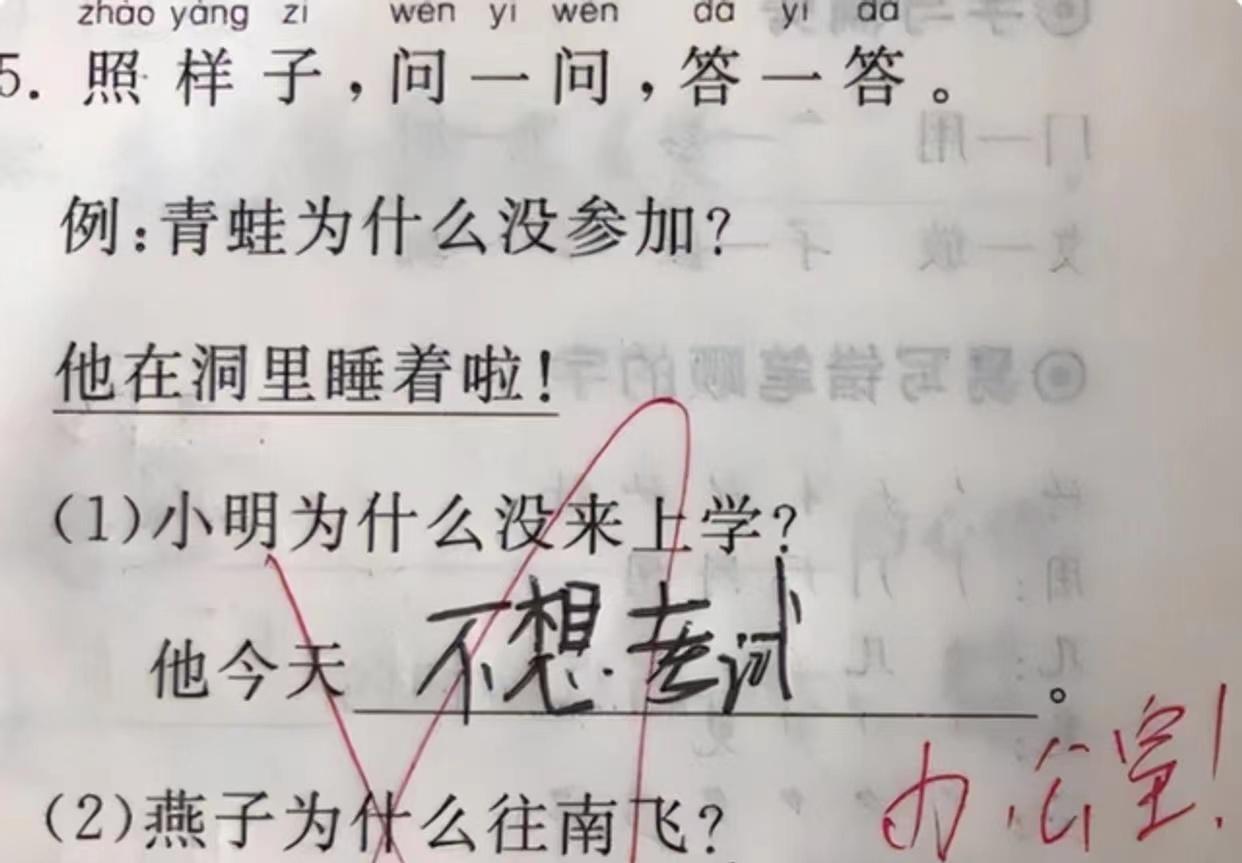 zhào yàng zi wèn yi wèn dá yi dá
5. 照样子,问一问,答一答。
例:青蛙为什么没参加?
他在洞里睡着啦!
(1)小明为什么没来上学?
他今天不想考试。
(2)燕子为什么往南飞?
办公室!